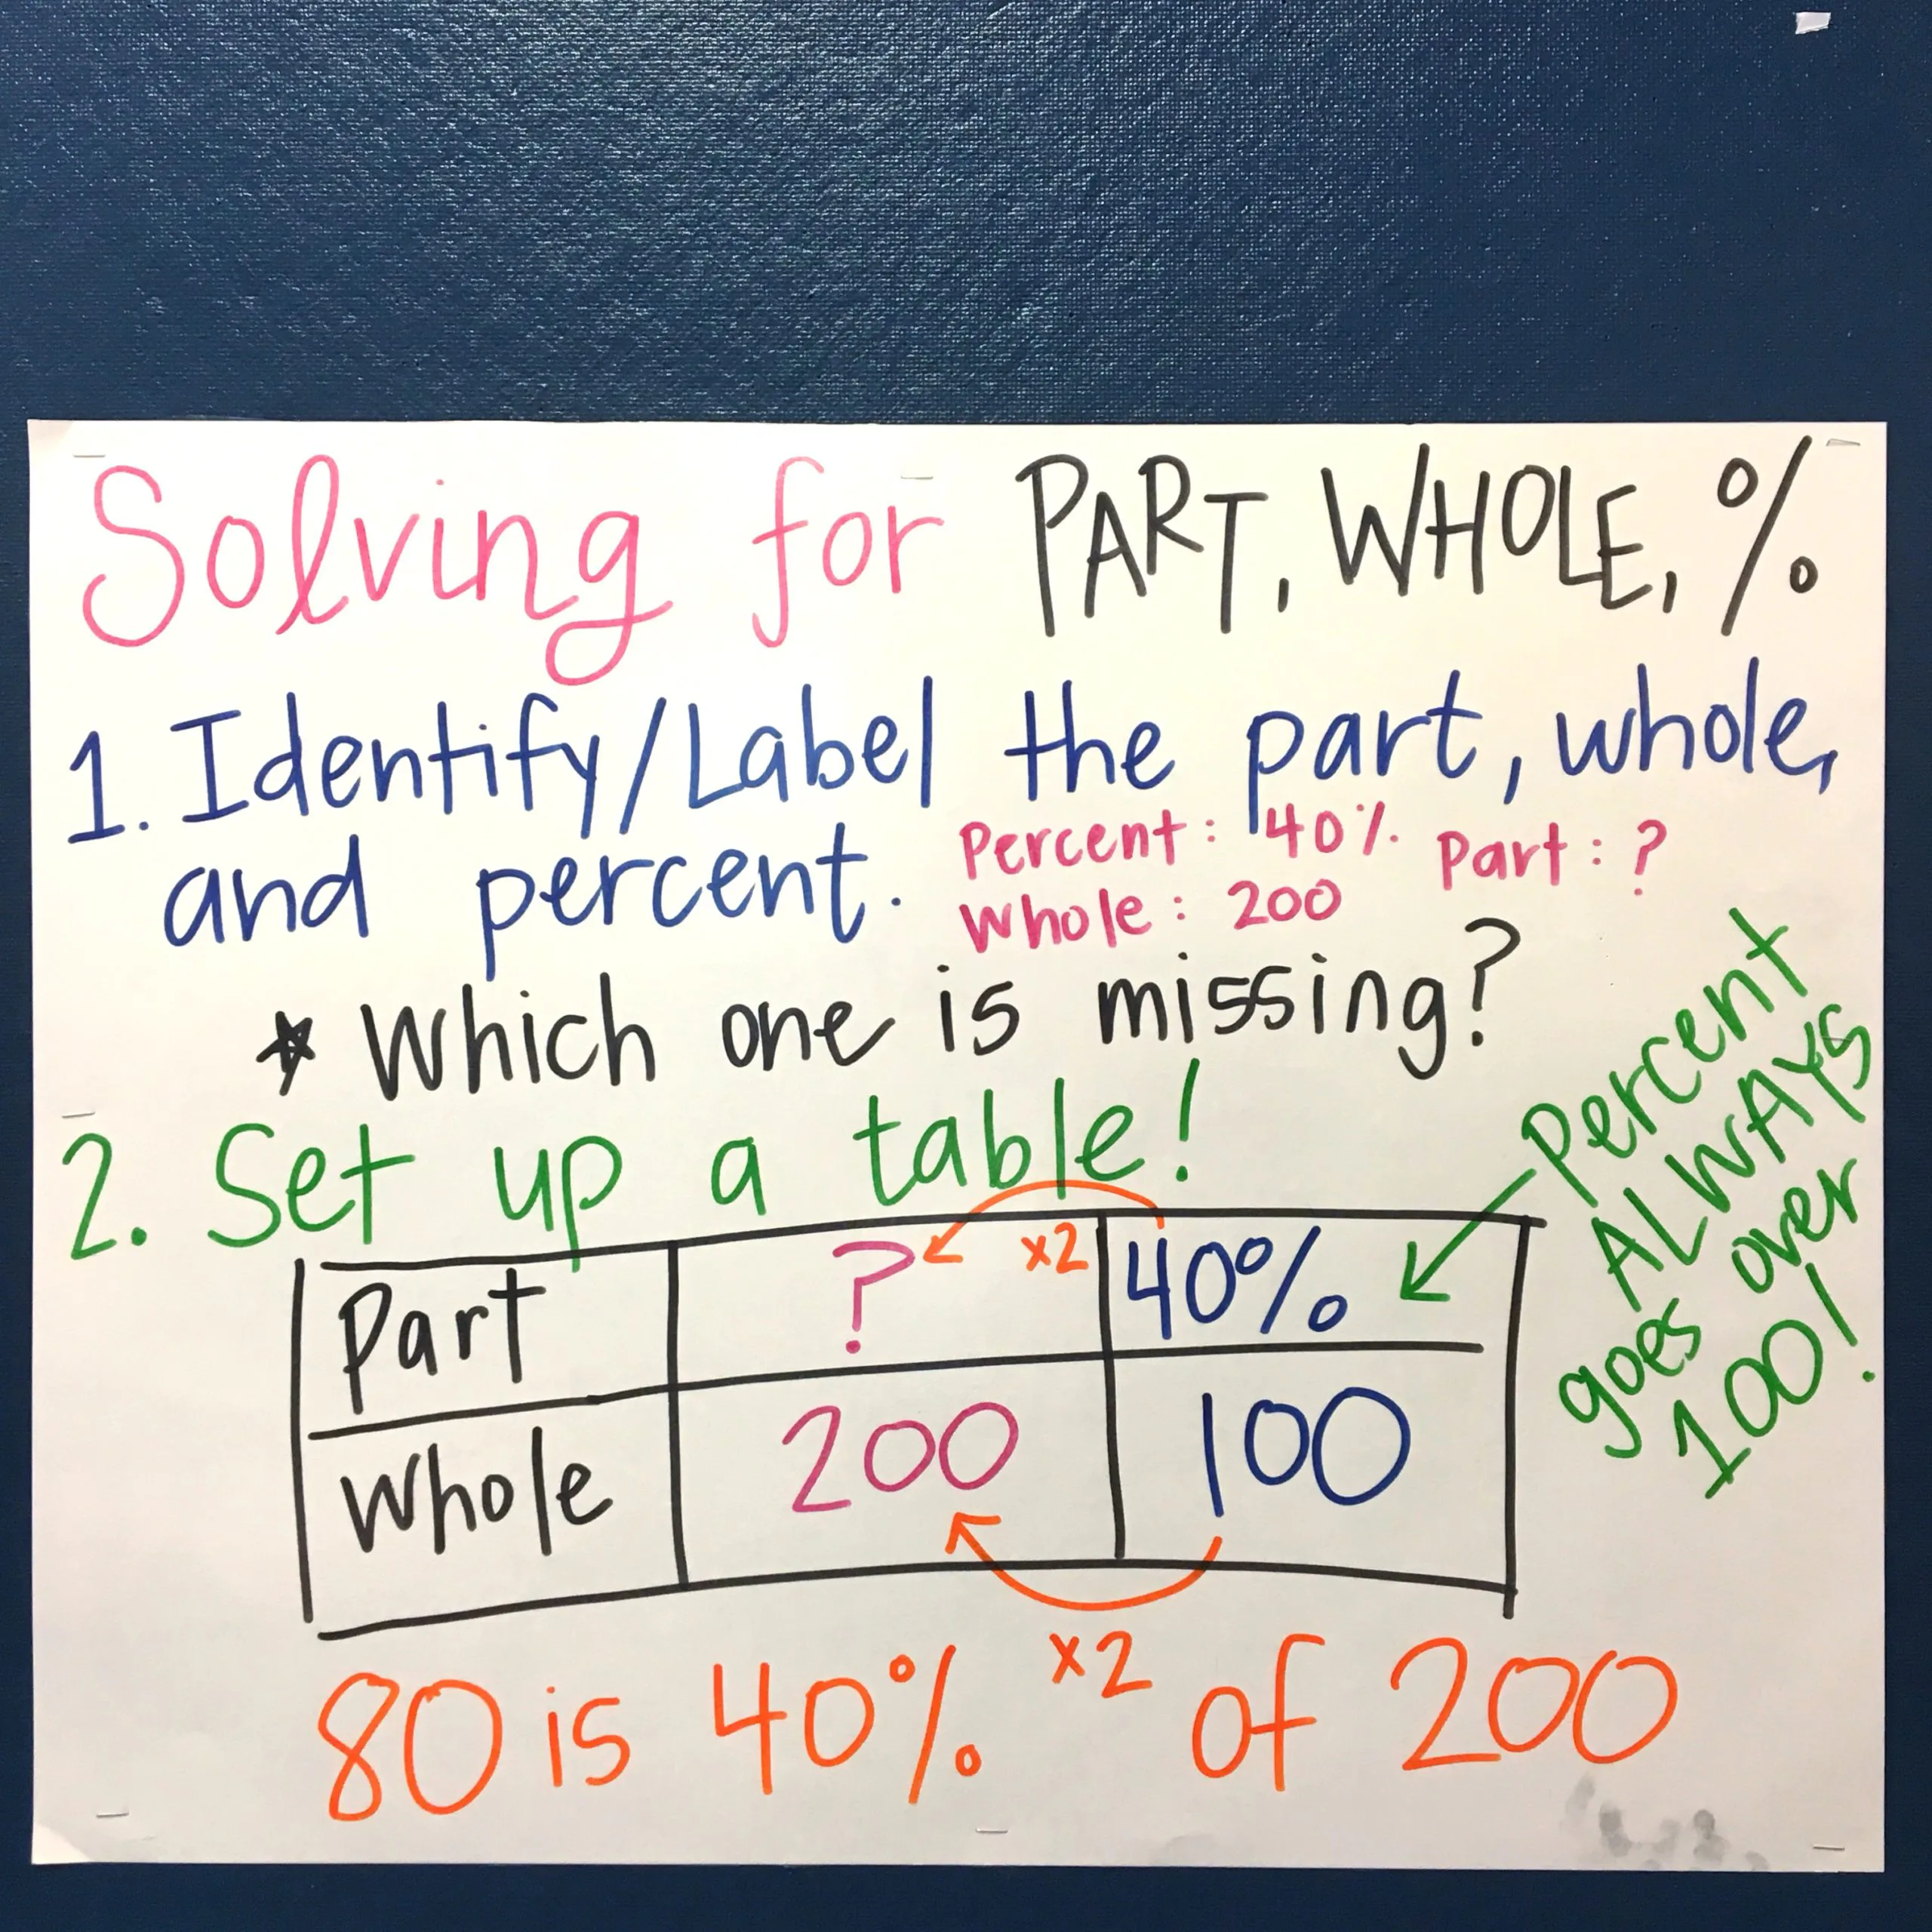 Solving for PART, WHOLE, %
1. Identify/Label the part, whole,
and percent.
Percent: 40% Part: ?
Whole: 200
* Which one is missing?
2. Set up a table!
Percent
ALWAYS
goes over
100!
Part ? x2 40%
Whole 200 100
x2
80 is 40% of 200